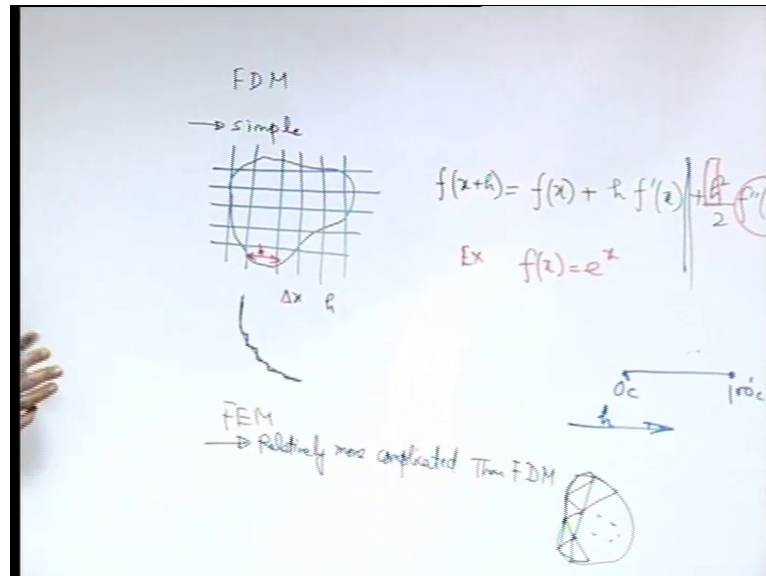 FDM
→ simple
f(x+h) = f(x) + h f'(x) + h²/2 f''(
Ex f(x) = e^x
Δx h
0°c 100°c
h
FEM
→ Relatively more complicated Than FDM